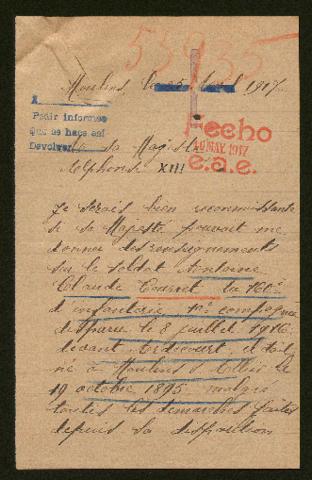 53935
Moulins, le 25 Avril 1917
A
Pedir informes
Que se hace así
Devolver
Hecho
10 MAY. 1917
e.a.e.
A sa Majesté
Alphonse XIII
Je serais bien reconnaissante
si sa Majesté pouvait me
donner des renseignements
sur le soldat Antoine
Claude du 160e
d'infanterie 11e compagnie
disparu le 8 juillet 1916
devant il était
né à Moulins s/ Allier le
19 octobre 1895 malgré
toutes les démarches faites
depuis sa disparition